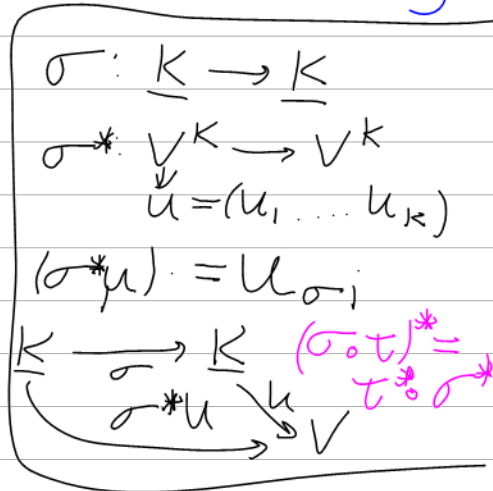 σ: K → K
σ*: V^K → V^K
u = (u₁ .... u_k)
(σ*u)ᵢ = u_σi
K →σ K
(σ∘τ)* =
τ*∘σ*
σ*u u V